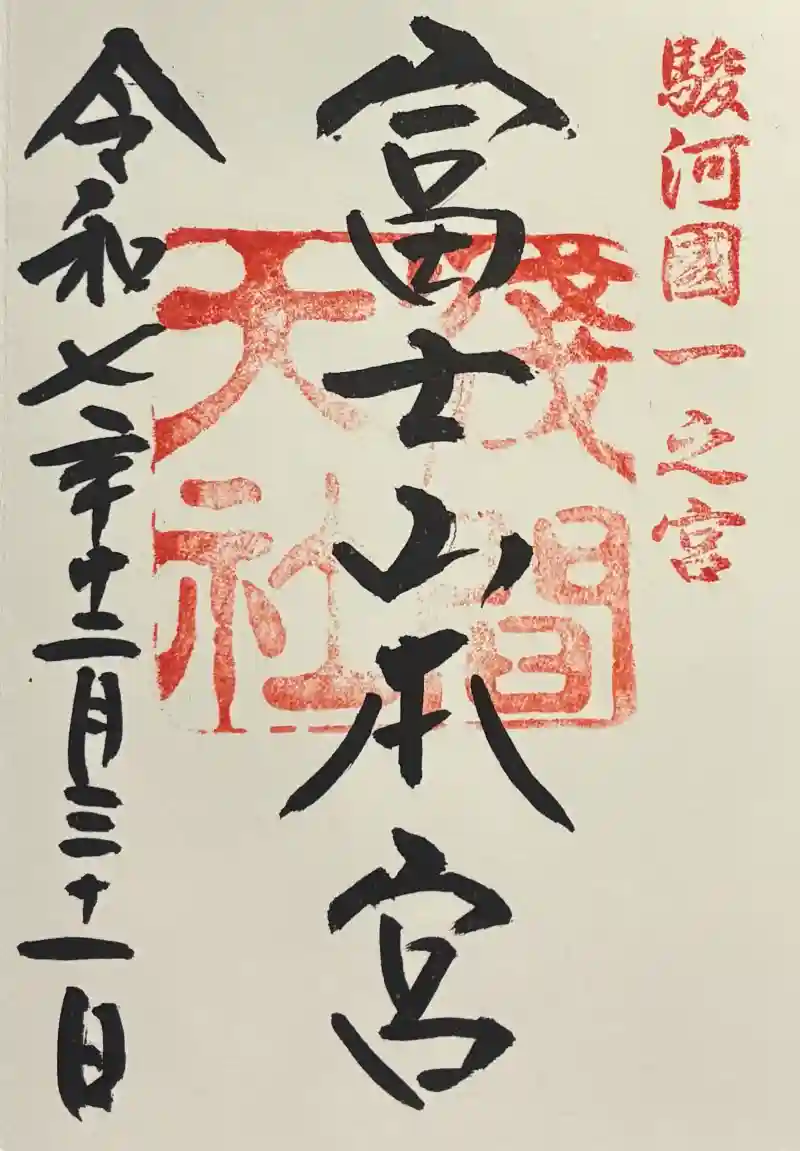 駿河國一之宮
富士山本宮
淺間
天社
令和七年十二月三十一日